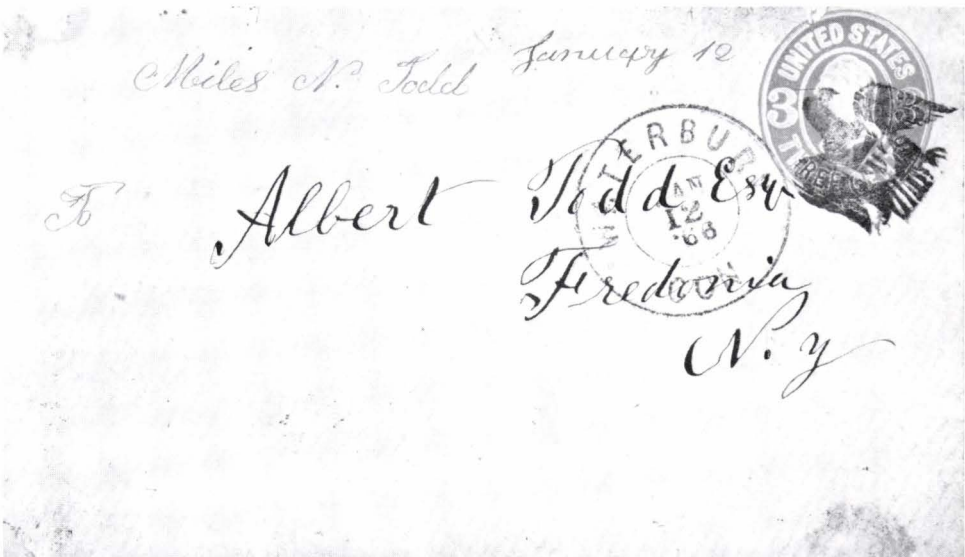 Miles N. Todd January 12
UNITED STATES
3 3
THREE CENTS
WATERBURY
JAN
12
'66
CONN
To Albert Todd Esqr
Fredonia
N. y